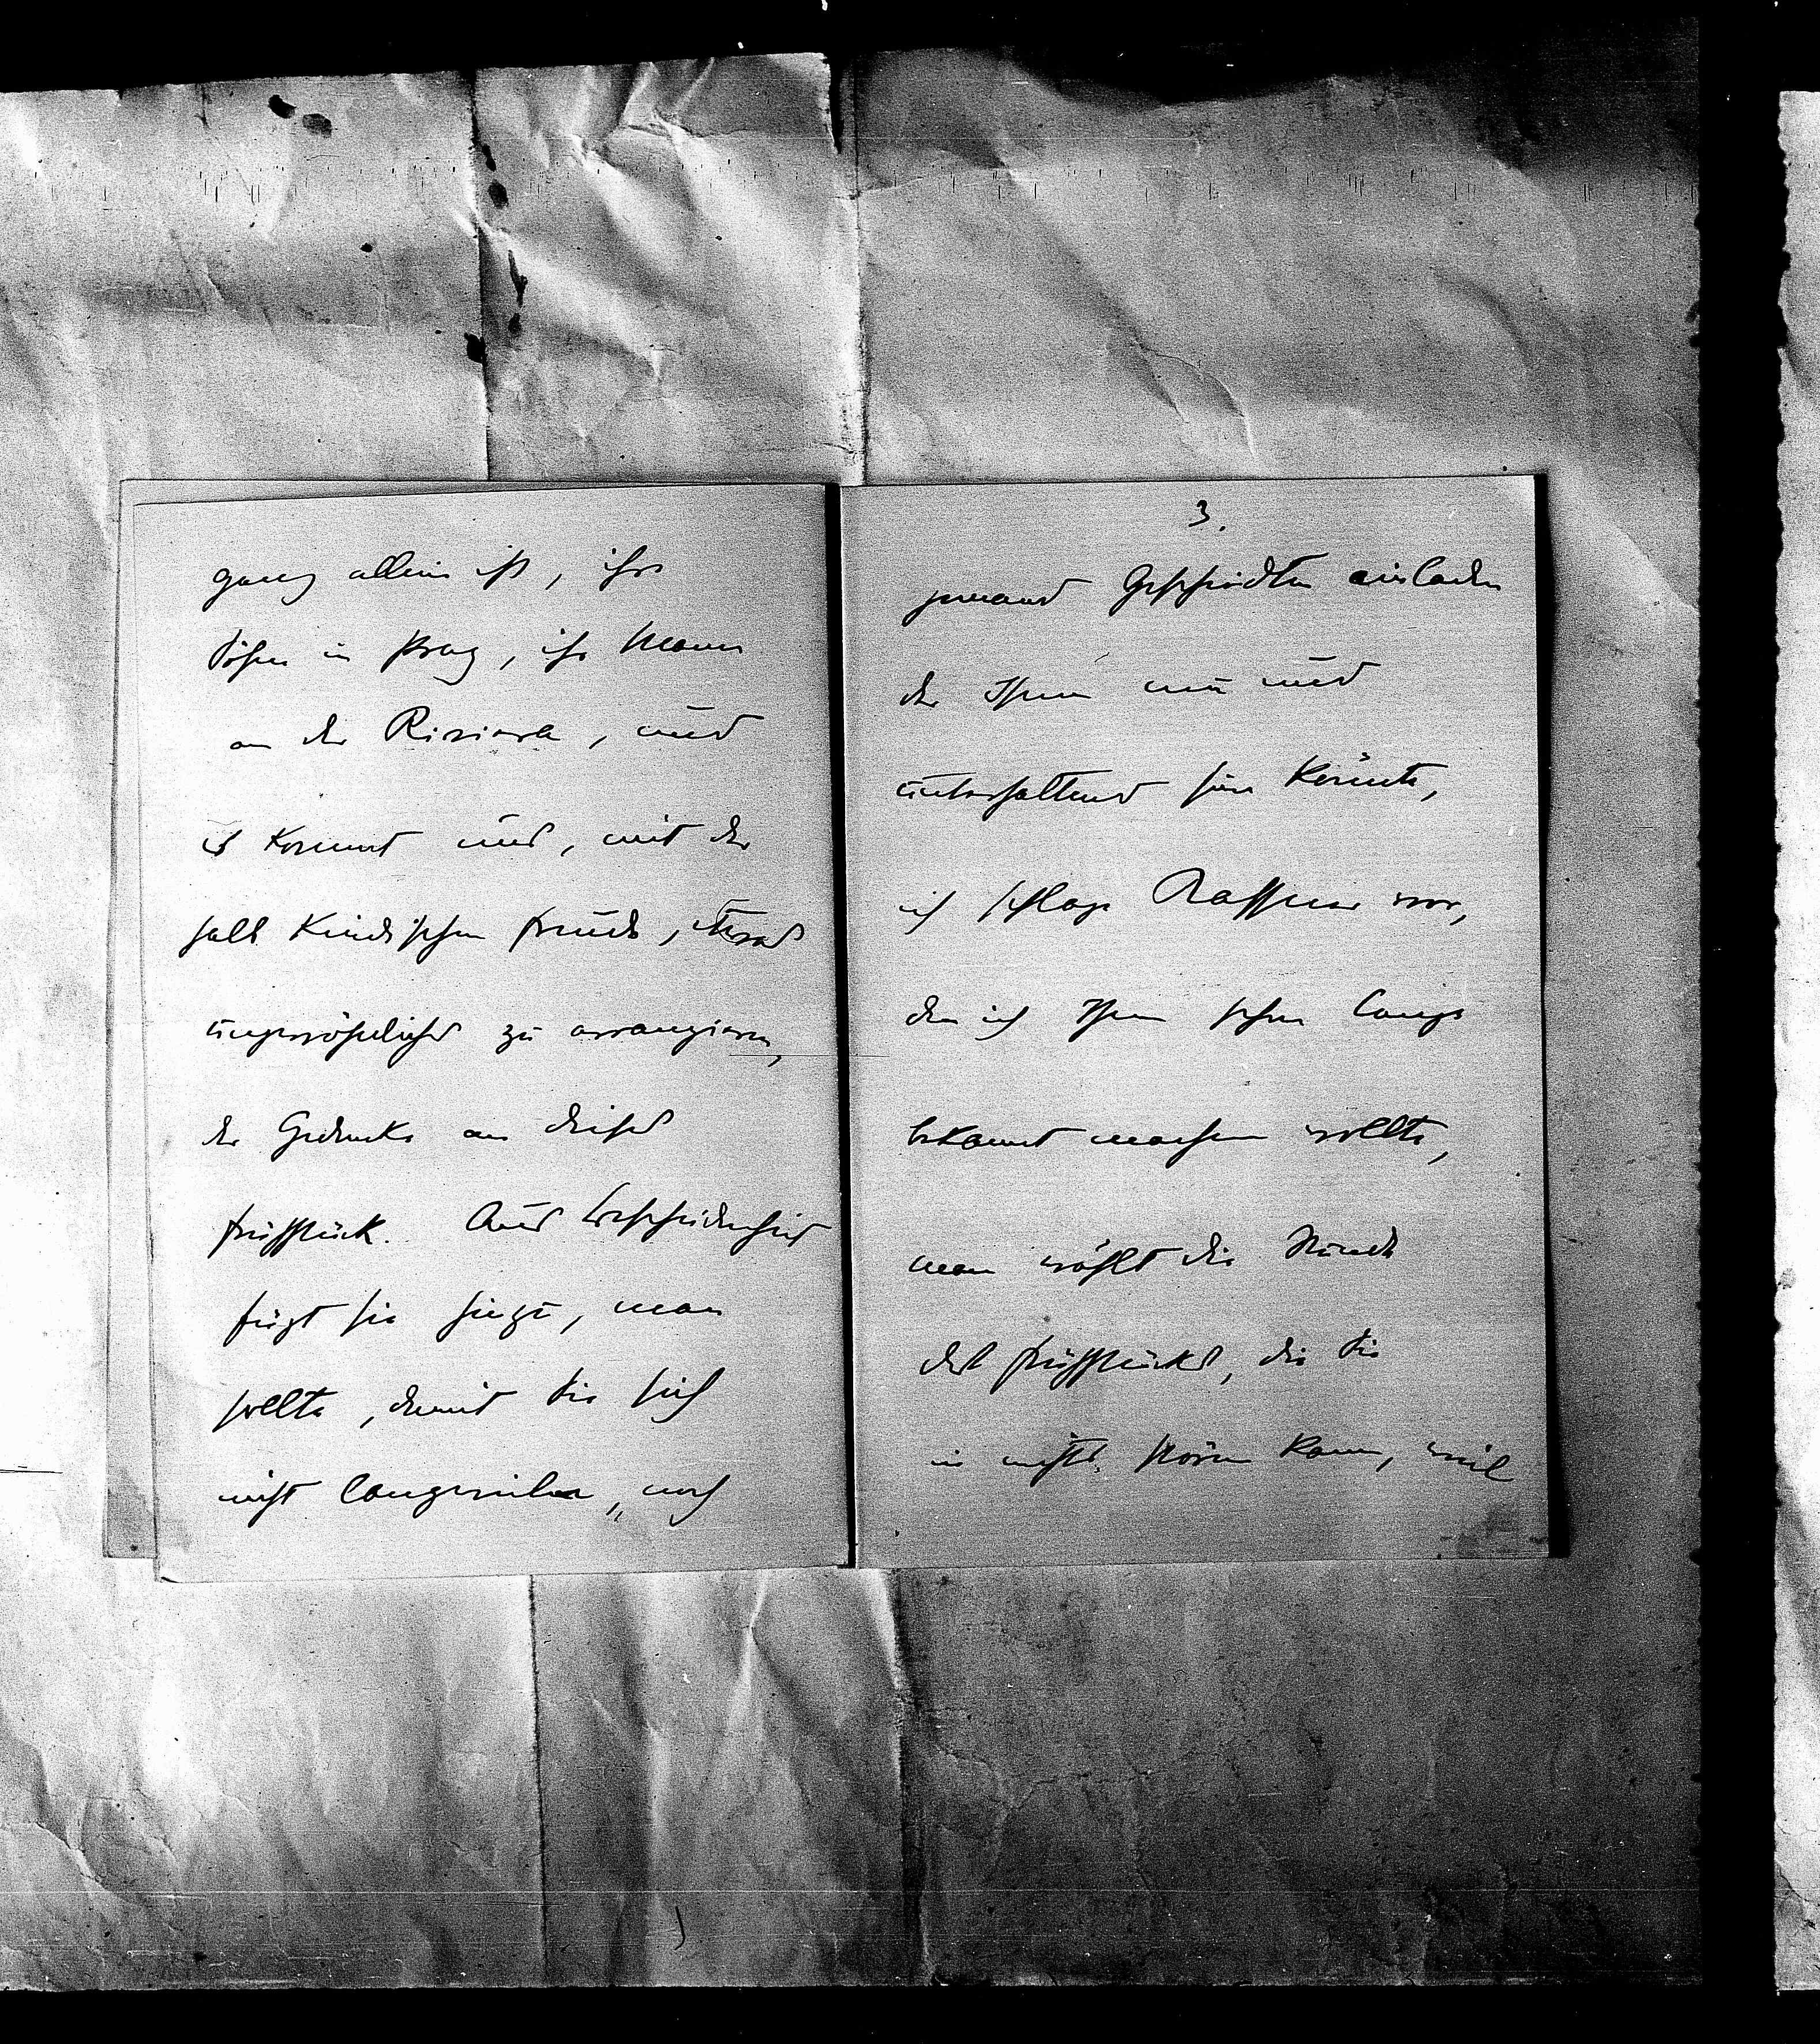 ganz allein ist, ihre
Söhne in Prag, ihr Mann
an der Riviera, und
es kommt nun, mit der
halb kindischen Freude, etwas
ungewöhnliches zu arrangieren,
der Gedanke an dieses
Frühstück. Aus Bescheidenheit
fügt sie hinzu, man
sollte, damit Sie sich
nicht langweilen, noch
3.
jemand Gescheidten einladen
der Ihnen neu und
unterhaltend sein könnte,
ich schlage Kassner vor,
den ich Ihnen schon lange
bekannt machen wollte,
man wählt die Stunde
des Frühstücks, die Sie
in nichts stören kann, weil